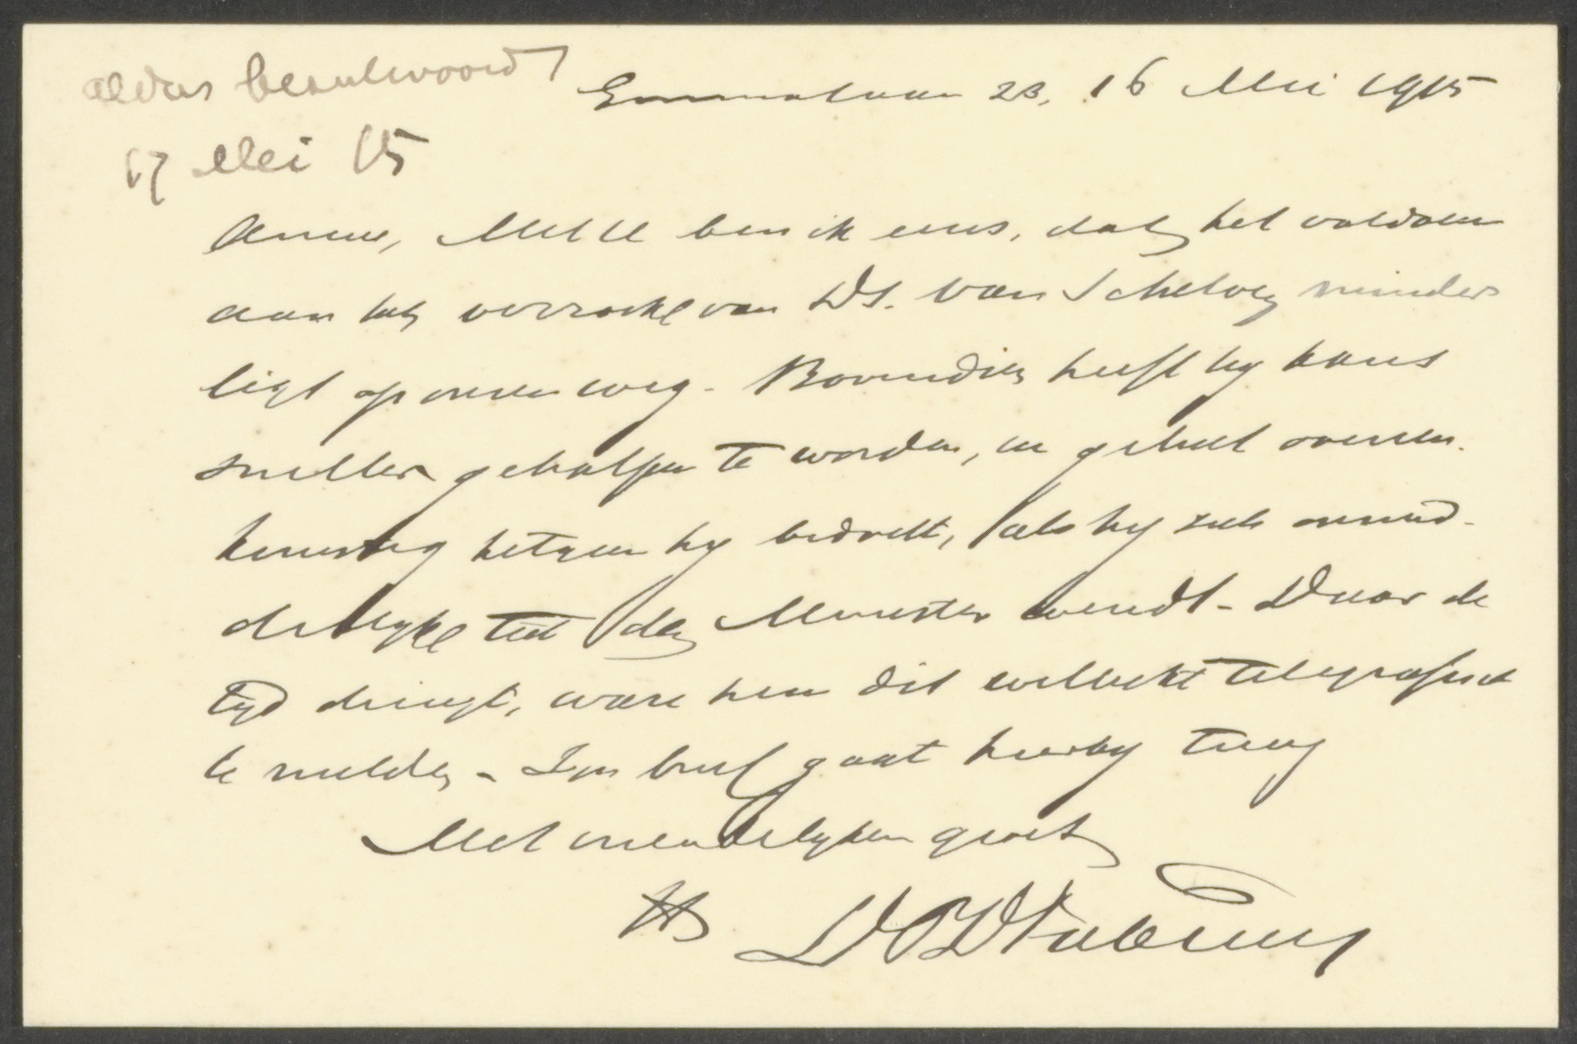 aldus beantwoord
17 Mei 15
Emmalaan 23, 16 Mei 1915
Amice, Met U ben ik eens, dat het voldoen
aan het verzoek van Ds. van Schelven minder
ligt op onzen weg. Bovendien heeft hy kans
sneller geholpen te worden, en geheel overeen-
komstig hetgeen hy bedoelt, als hy zich onmid-
delijk tot den Minister wendt. Daar de
tyd dringt, ware hem dit wellicht telegrafisch
te melden. Zyn brief gaat hierby terug
Met vriendelyken groet